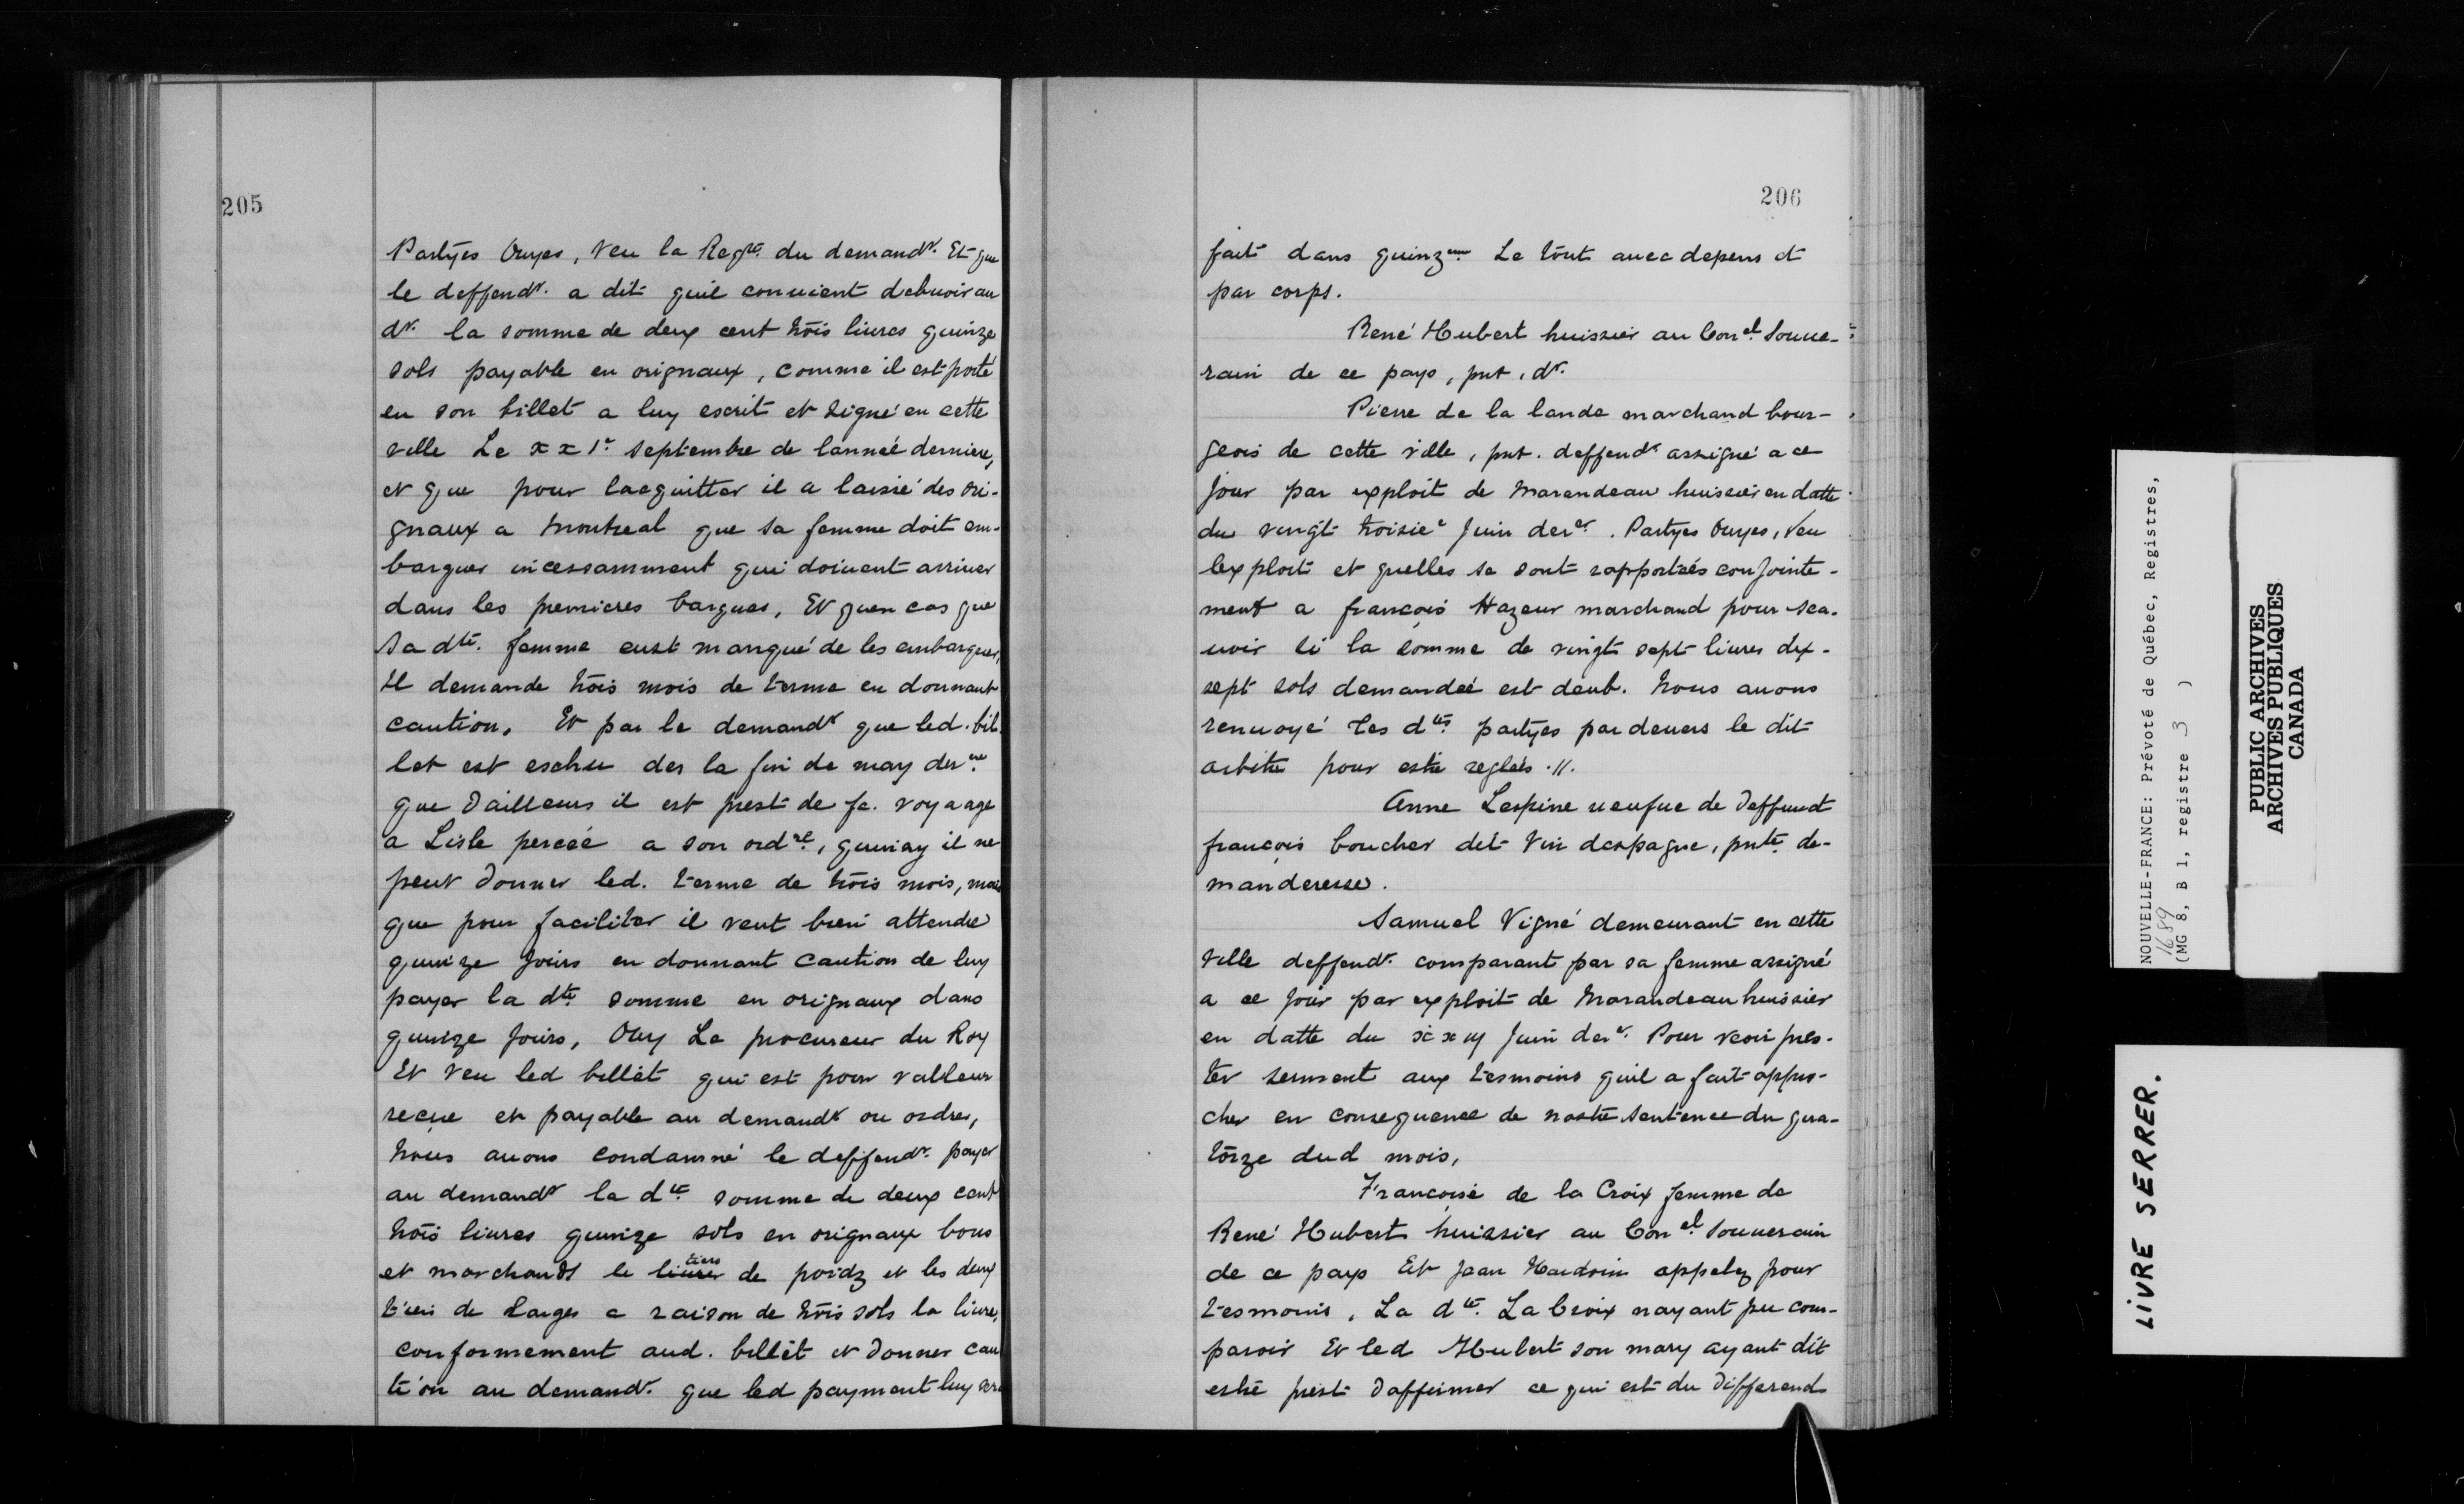 205
Partÿes Ouyes, Veu la Reqte. du demandr. Et que
le deffendr. a dit quil conuient debuoir au
dr. la somme de deux cent trois liures quinze
sols payable en orignaux, comme il est porté
en son billet a luy escrit et signé en cette
ville Le xx1e. septembre de lanneé derniere,
et que pour lacquitter il a laissé des ori-
gnaux a Montreal que sa femme doit em-
barquer incessamment qui doiuent arriuer
dans les premieres barques, Et quen cas que
sa dte. femme eust manqué de les embarquer,
Il demande trois mois de terme en donnant
caution. Et par le demandr que led. bil
let est escheu des la fin de may derere
que dailleurs il est prest de fe. voyaage
a Lisle perceé a son ordre, quainsy il ne
peut donner led. terme de trois mois, mais
que pour faciliter il veut bien attendre
quinze jours en donnant caution de luy
payer la dte. somme en orignaux dans
quinze jours, Ouy Le procureur du Roy
Et Veu led billet qui est pour valleur
receue et payable au demandr ou ordres,
Nous auons condamné le deffendr. payer
au demandr la dte somme de deux cent
trois liures quinze sols en orignaux bons
et marchands le liures tiers de poidz et les deux
tiers de larges a raison de trois sols la liure,
conformement aud. billet et donner cau
tion au demandr. que led payment luy sera
206
fait dans quinzne Le tout auec depens et
par corps.
René Hubert huissier au Conel. Souue-
rain de ce pays, pnt, dr.
Pierre de la lande marchand bour-
geois de cette ville, pnt. deffendr assigné a ce
jour par exploit de Marandeau huissier en datte
du vingt troisie Juin derer. Partyes Ouyes, Veu
lexploit et quelles se sont rapporteés conjointe-
ment a francois Hazeur marchand pour sca-
uoir si la somme de vingt sept liures dix-
sept sols demandeé est deub. Nous auons
renuoyé Les dtes partyes par deuers le dit
arbitre pour estre regleés .//.
Anne Lespine ueufue de deffunct
françois boucher dit Vin despagne, pnte. de-
manderesse.
Samuel Vigné demeurant en cette
ville deffendr. comparant par sa femme assigné
a ce jour par exploit de Marandeau huissier
en datte du xxiij Juin derer. Pour veoir pres-
ter serment aux tesmoins quil a fait appro-
cher en consequence de nostre sentence du qua-
torze dud mois,
Francoise de la Croix femme de
René Hubert huissier au Conel. Souuerain
de ce pays Et Jean Hardoin appelez pour
tesmoins. La dte. La Croix nayant peu com-
paroir Et led Hubert son mary ayant dit
estre prest daffirmer ce qui est du differend
NOUVELLE-FRANCE: Prévoté de Québec, Registres,
1689
(MG 8, B 1, registre 3 )
PUBLIC ARCHIVES
ARCHIVES PUBLIQUES
CANADA
LIVRE SERRER.